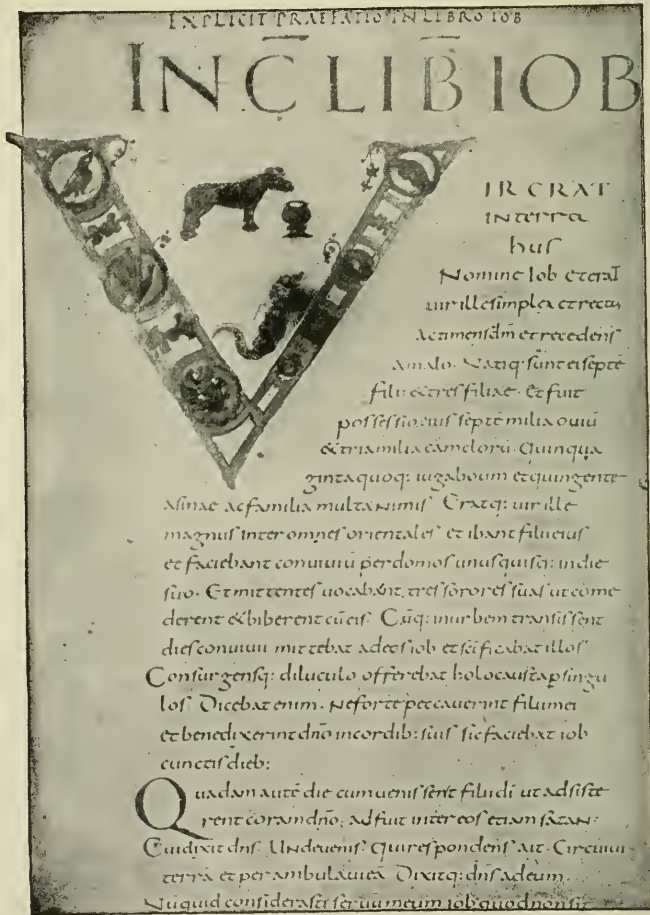 EXPLICIT PRAEFATIO IN LIBRO IOB
INC̄ LIB̄ IOB
IR ERAT
IN terra
hus
Nomine Iob & erat
uir ille simplex et rectus
ac timens dm̄ et recedens
a malo. Natiq; sunt ei septē
filii & tres filiae. Et fuit
possessio eius septē milia ouiū
& tria milia camelorū. Quinqua
ginta quoq; iuga boum et quingente
asinae ac familia multa nimis. Eratq; uir ille
magnus inter omnes orientales et ibant filii eius
et faciebant conuiuiū per domos unusquisq; in die
suo. Et mittentes uocabant tres sorores suas ut come
derent & biberent cū eis. Cūq; in urbem transissent
dies conuiuii mittebat ad eos iob et sc̄ificabat illos
Consurgensq; diluculo offerebat holocausta p singu
los. Dicebat enim. Ne forte peccauerint filii mei
et benedixerint dn̄o in cordib; suis sic faciebat iob
cunctis dieb;
Quadam autē die cum uenissent filii di ut adsiste
rent coram dn̄o, adfuit inter eos etiam satan.
Cui dixit dn̄s. Unde uenis. Qui respondens ait. Circuiui
terrā et perambulaui eā. Dixitq; dn̄s ad eum.
Nūquid considerasti seruum meum iob quod non sit